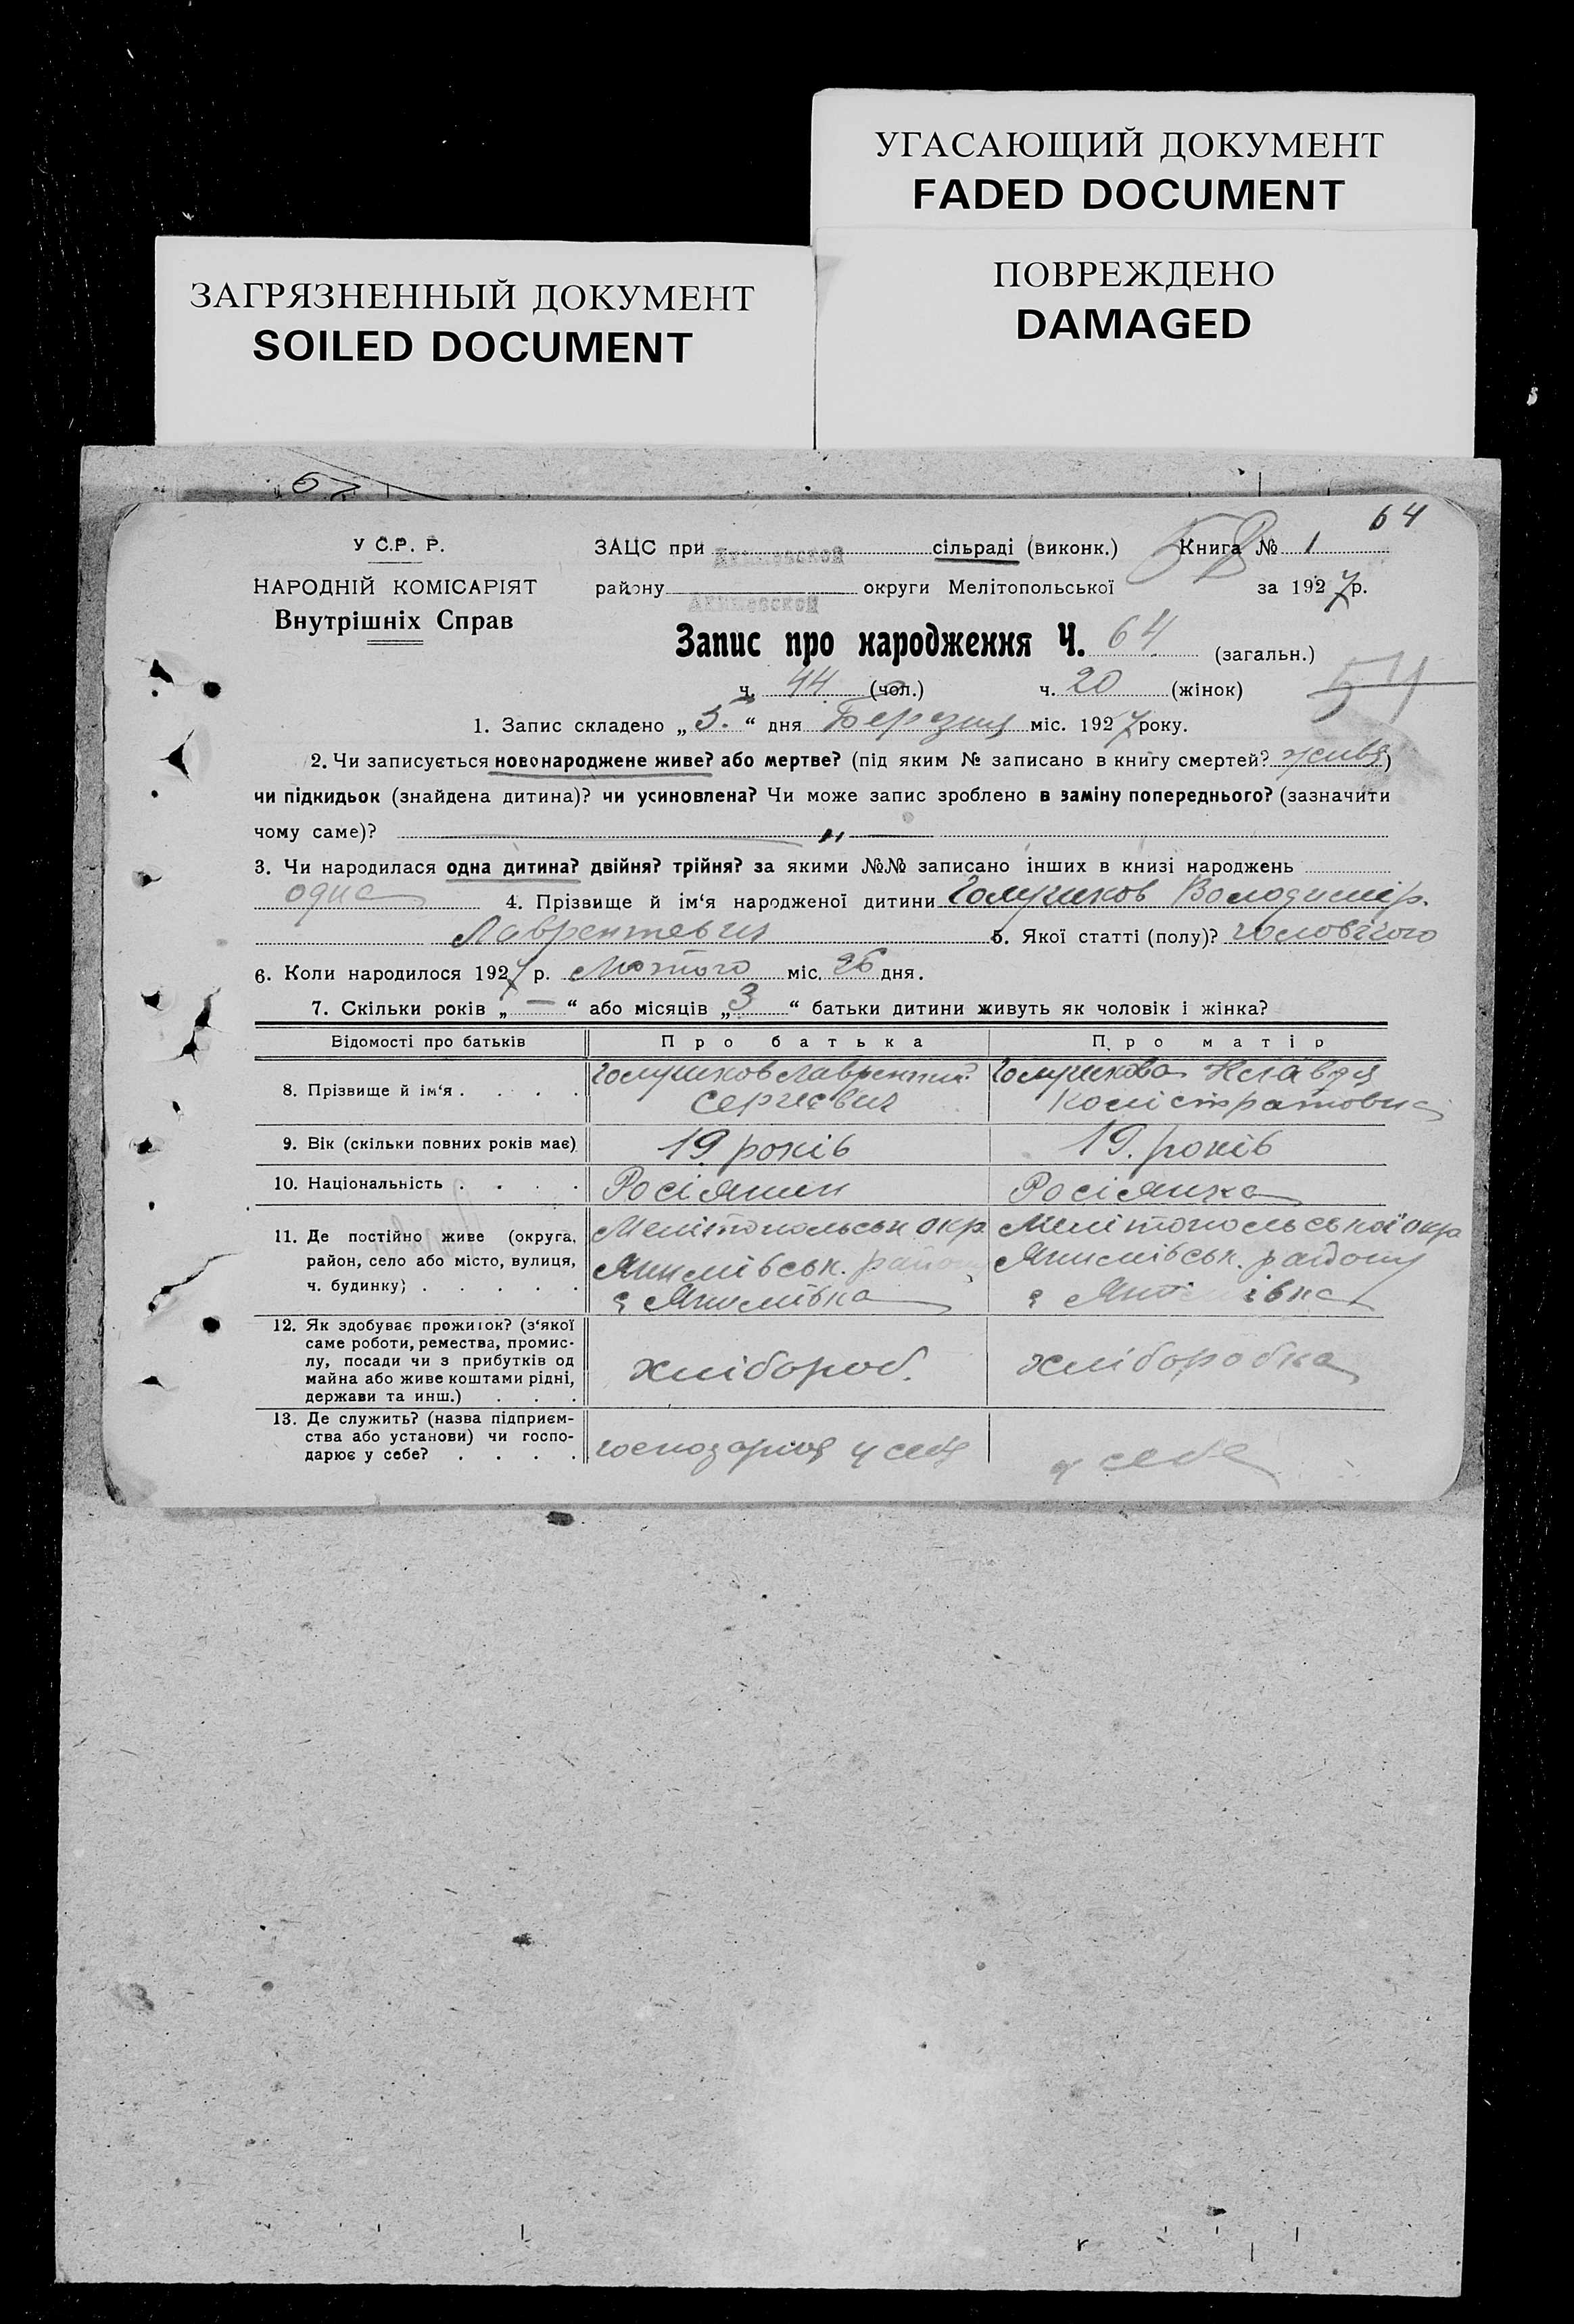 УГАСАЮЩИЙ ДОКУМЕНТ
FADED DOCUMENT
ЗАГРЯЗНЕННЫЙ ДОКУМЕНТ
SOILED DOCUMENT
ПОВРЕЖДЕНО
DAMAGED
64
У С.Р. Р.
НАРОДНІЙ КОМІСАРІЯТ
Внутрішніх Справ
ЗАЦС при сільраді (виконк.) Книга № 1
58
району округи Мелітопольської за 1927 р.
Запис про народження Ч. 64 (загальн.)
ч. 44 (чол.) ч. 20 (жінок) 54
1. Запис складено „ 5. “ дня Березня міс. 1927 року.
2. Чи записується новонароджене живе? або мертве? (під яким № записано в книгу смертей? живе)
чи підкидьок (знайдена дитина)? чи усиновлена? Чи може запис зроблено в заміну попереднього? (зазначити
чому саме)? — „ —
3. Чи народилася одна дитина? двійня? трійня? за якими №№ записано інших в книзі народжень
одна 4. Прізвище й ім‘я народженої дитини Володимір.
Лаврентевич 5. Якої статті (полу)? чоловічого
6. Коли народилося 1927 р. Лютого міс. 26 дня.
7. Скільки років „ — “ або місяців „ 3 “ батьки дитини живуть як чоловік і жінка?
Відомості про батьків Про батька Про матір
8. Прізвище й ім‘я . . . . Лаврентий Клавдя
Сергієвич Калістратовна
9. Вік (скільки повних років має) 19 років 19. років
10. Національність . . . . Росіянин Росіянка
11. Де постійно живе (округа, Мелітопольськ окр. Мелітопольської окр
район, село або місто, вулиця, Якимівськ. району Якимівськ. району
ч. будинку) . . . . . с Якимівка с
12. Як здобуває прожиток? (з‘якої
саме роботи, ремества, промис-
лу, посади чи з прибутків од хлібороб. хліборобка
майна або живе коштами рідні,
держави та инш.) . . .
13. Де служить? (назва підприєм-
ства або установи) чи госпо- господарює у себе у себе
дарює у себе? . . . .